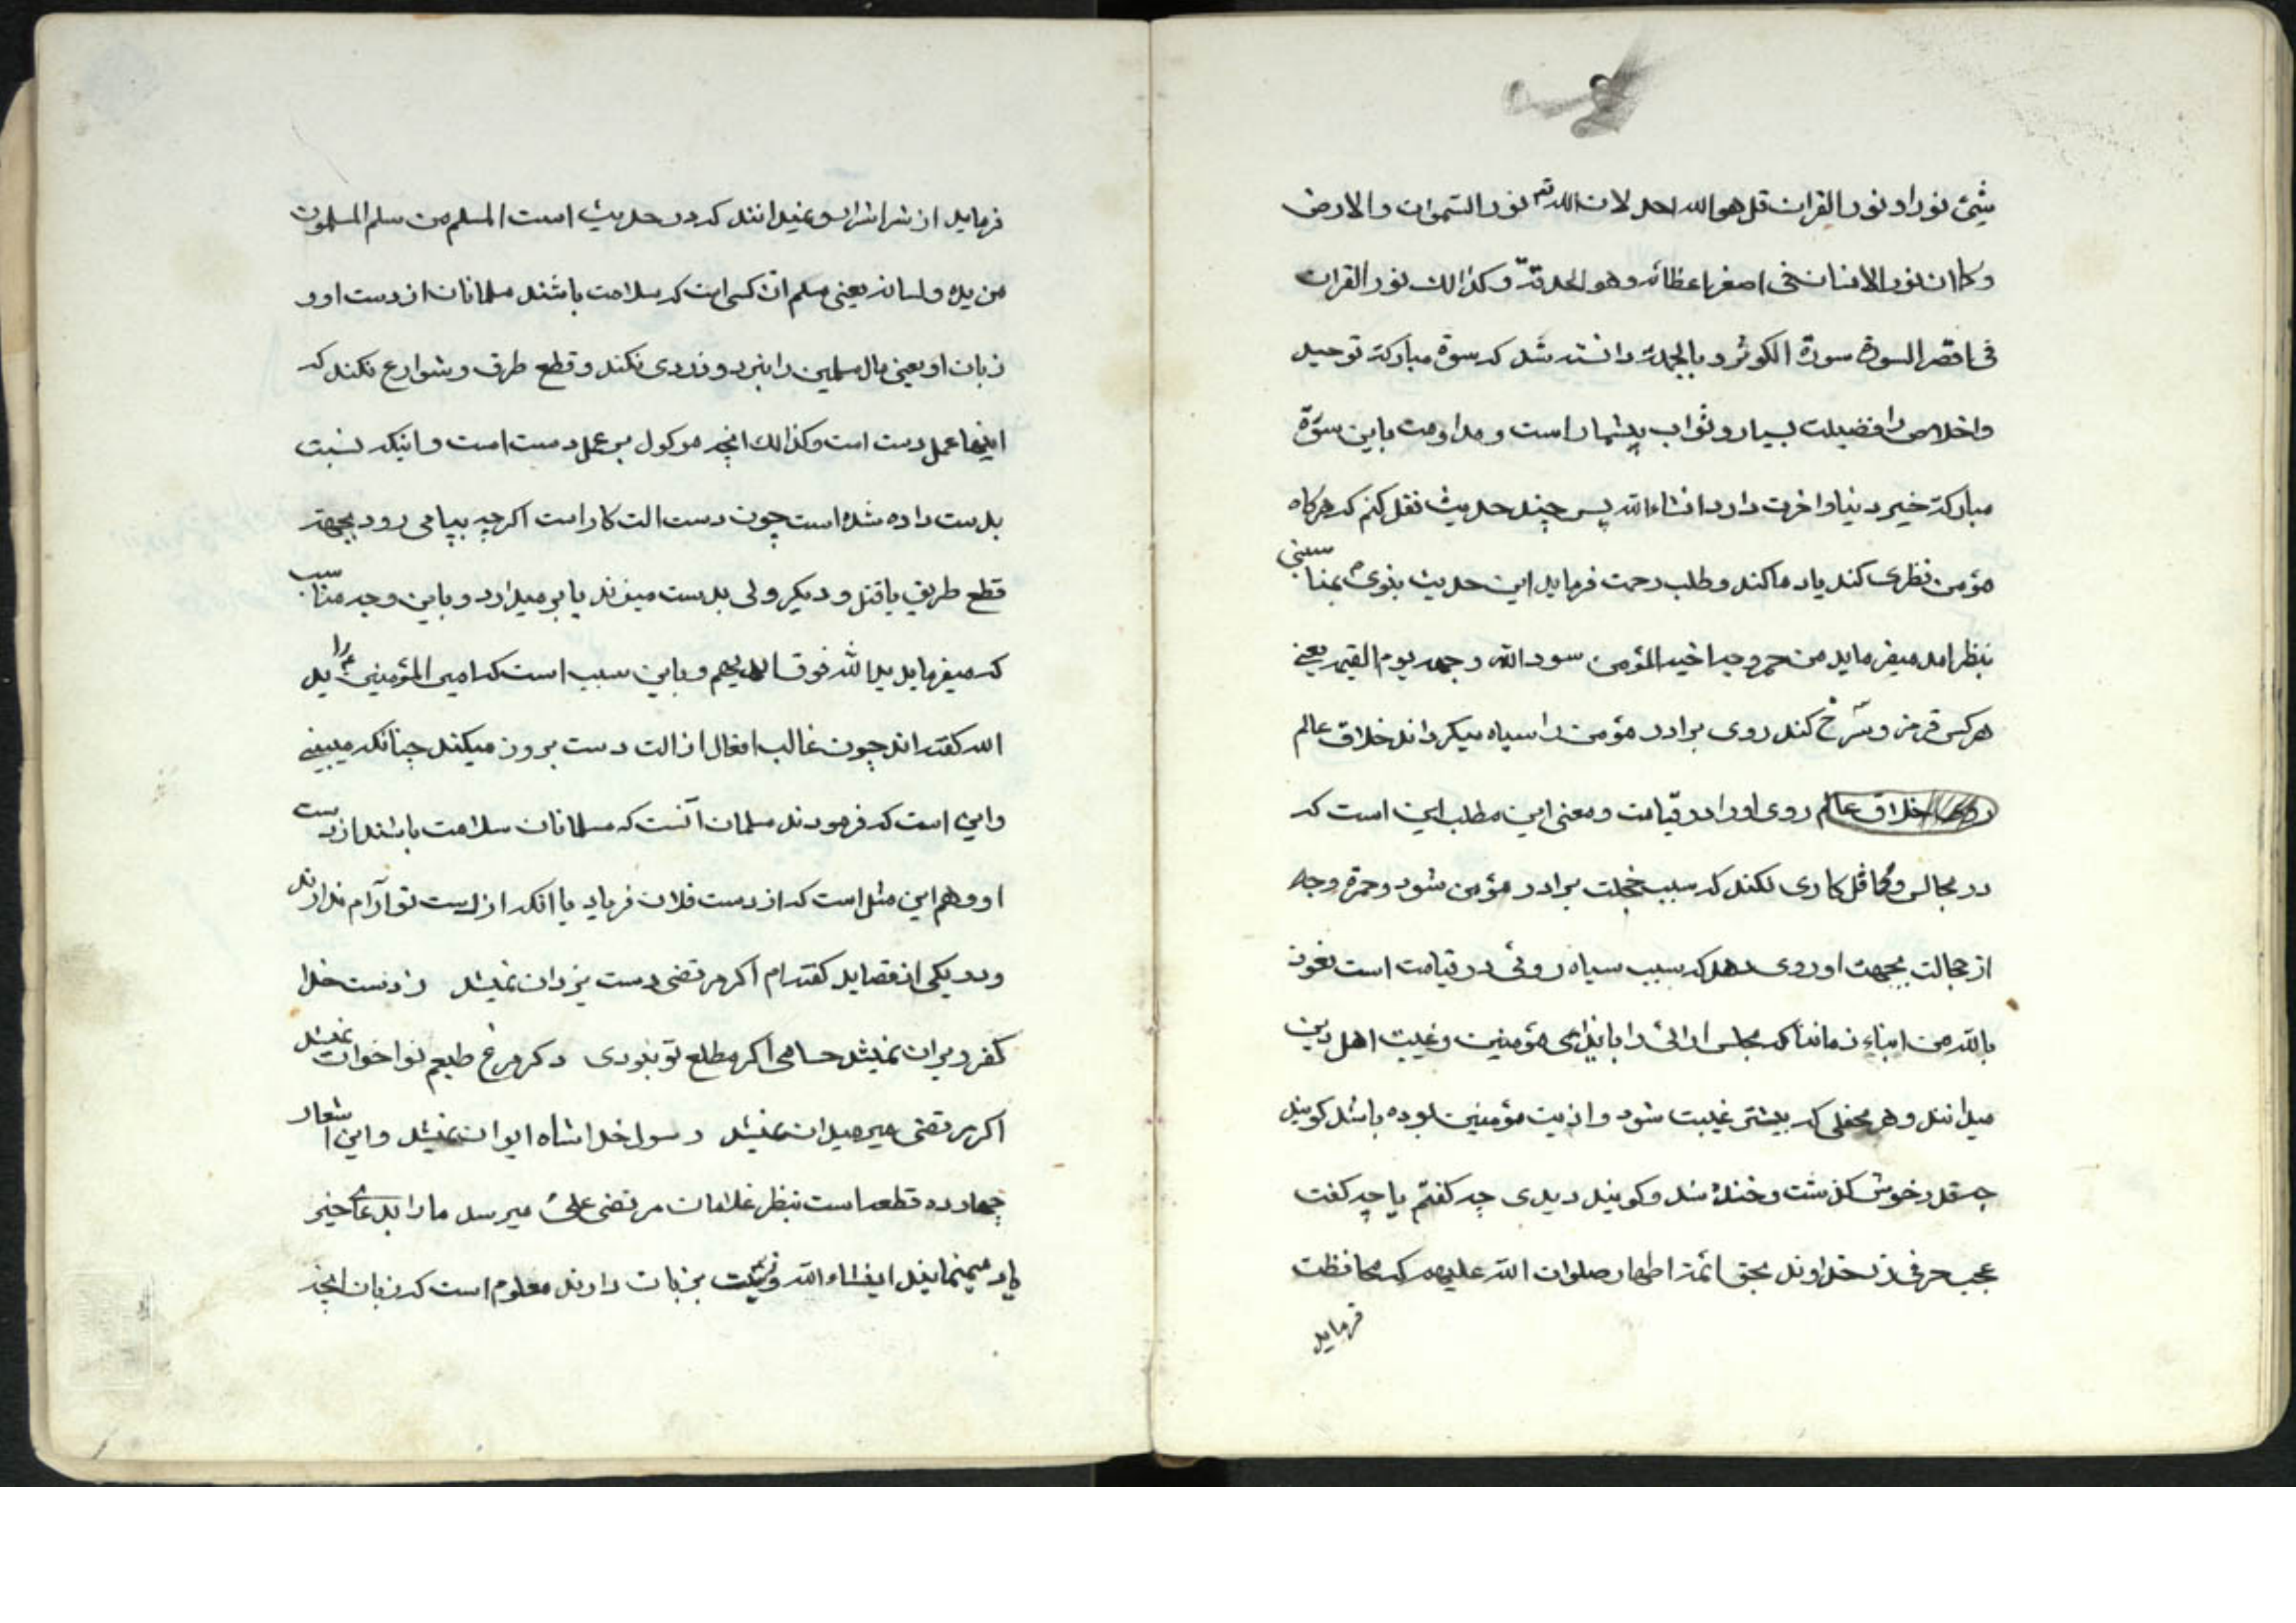 شیئ نورا و نور القران قل هو الله احد لان الله تم نور السموات والارض
و کما ان نور الانسان فی اصغر اعظائه و هو الحدقة و کذالک نور القران
فی اقصر السورة سورة الکوثر و بالجمله دانسته شد که سورۀ مبارکۀ توحید
و اخلاص را فضیلت بسیار و ثواب بیشمار است و مداومت باین سورۀ
مبارکۀ خیر دنیا و اخرت دارد انشاءالله پس چند حدیث نقل کنم که هرکاه
مؤمن نظری کند یاد ما کند و طلب رحمت فرماید این حدیث نبوی ص
بنظر امد میفرماید من حمر وجه اخیه المؤمن سود الله وجهه یوم القیمه یعنی
هر کس قرمز و سرخ کند روی برادر مؤمن را سیاه میکرداند خلاق عالم
خلاق عالم روی او را در قیامت و معنی این مطلب این است که
در مجالس و محافل کاری نکند که سبب خجلت برادر مؤمن شود و حمرة وجه
از خجالت بجهت او روی دهد که سبب سیاه روئی در قیامت است نعوذ
بالله من ابناء زماننا که مجلس ارائی را بایذای مؤمنین و غیبت اهل دین
میدانند و هر محفلی که بیشتر غیبت شود و اذیت مؤمنین بوده باشد کویند
چه قدر خوش کذشت و خنده شد و کویند دیدی چه کفتم یا چه کفت
عجب حرفی زد خداوند بحق ائمۀ اطهار صلوات الله علیهم که محافظت
فرماید
فرماید از شر اشرار و نمیدانند که در حدیث است المسلم من سلم المسلمون
من یده و لسانه یعنی مسلم ان کسی است که سلامت باشند مسلمانان از دست او و
زبان او یعنی مال مسلمین را نبرد و دزدی نکند و قطع طرق و شوارع نکند که
اینها عمل دست است و کذالک انچه موکول بر عمل دست است و اینکه نسبت
بدست داده شده است چون دست الت کار است اکرچه بپا می رود بجهة
قطع طریق یا قتل و دیکر ولی بدست میزند یا بر میدارد و باین وجه مناسب
که میفرماید ید الله فوق ایدیهم و باین سبب است که امیر المؤمنین ع را ید
الله کفته اند چون غالب افعال از الت دست بروز میکند چنانکه میبینی
و این است که فرمودند مسلمان آنست که مسلمانان سلامت باشند از دست
او و هم این مثل است که از دست فلان فریاد یا انکه از دست تو آرام ندارند
و در یکی از قصاید کفته ام اکر مرتضی دست یزدان نمیشد ز دست خدا
کفر ویران نمیشد حسامی اکر مطلع تو نبودی دکر مرغ طبعم نواخوان نمیشد
اکر مرتضی میر میدان نمیشد رسول خدا شاه ایوان نمیشد و این اشعار
چهارده قطعه است بنظر غلامان مرتضی علی میرسد ما را بدعای خیر
یاد مینمایند انشاء الله و نسبت بزبان دادند معلوم است که زبان انچه